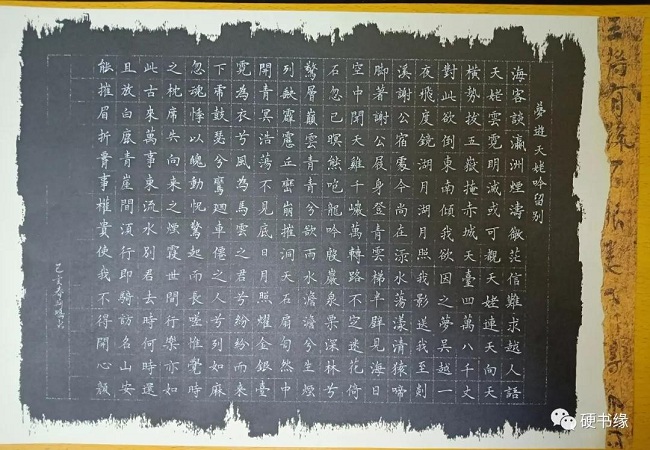 夢遊天姥吟留別
海客談瀛洲煙濤微茫信難求越人語
天姥雲霓明滅或可觀天姥連天向天
橫勢拔五嶽掩赤城天臺四萬八千丈
對此欲倒東南傾我欲因之夢吳越一
夜飛度鏡湖月湖月照我影送我至剡
溪謝公宿處今尚在淥水蕩漾清猿啼
脚著謝公屐身登青雲梯半壁見海日
空中聞天雞千巖萬轉路不定迷花倚
石忽已暝熊咆龍吟殷巖泉栗深林兮
驚層巔雲青青兮欲雨水澹澹兮生煙
列缺霹靂丘巒崩摧洞天石扇訇然中
開青冥浩蕩不見底日月照耀金銀臺
霓為衣兮風為馬雲之君兮紛紛而來
下虎鼓瑟兮鸞迴車僊之人兮列如麻
忽魂悸以魄動怳驚起而長嗟惟覺時
之枕席失向來之煙霞世間行樂亦如
此古來萬事東流水別君去時何時還
且放白鹿青崖間須行即騎訪名山安
能摧眉折腰事權貴使我不得開心顏
己亥
硬书缘